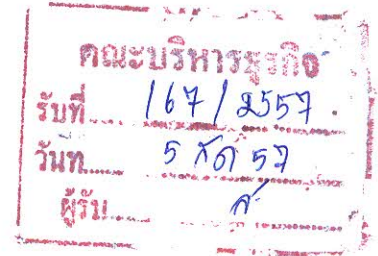 คณะบริหารธุรกิจ
รับที่ 167/2557
วันที่ 5 กค 57
ผู้รับ